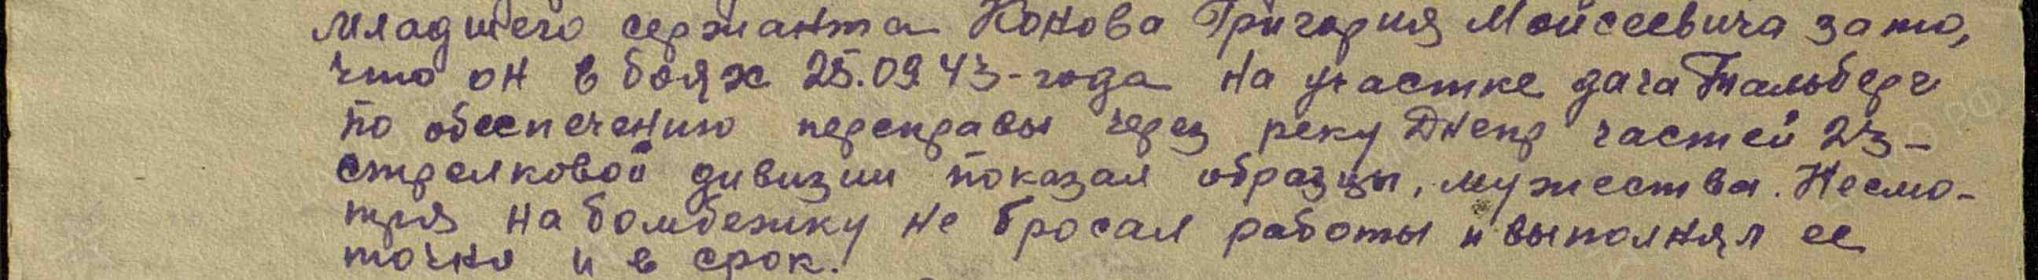 младшего сержанта Конова Григория Мойсеевича за то,
что он в боях 25.09.43-года на участке дача Тальберг
по обеспечению переправы через реку Днепр частей 23-
стрелковой дивизии показал образцы, мужества. Несмо-
тря на бомбежку не бросал работы и выполнял ее
точно и в срок.